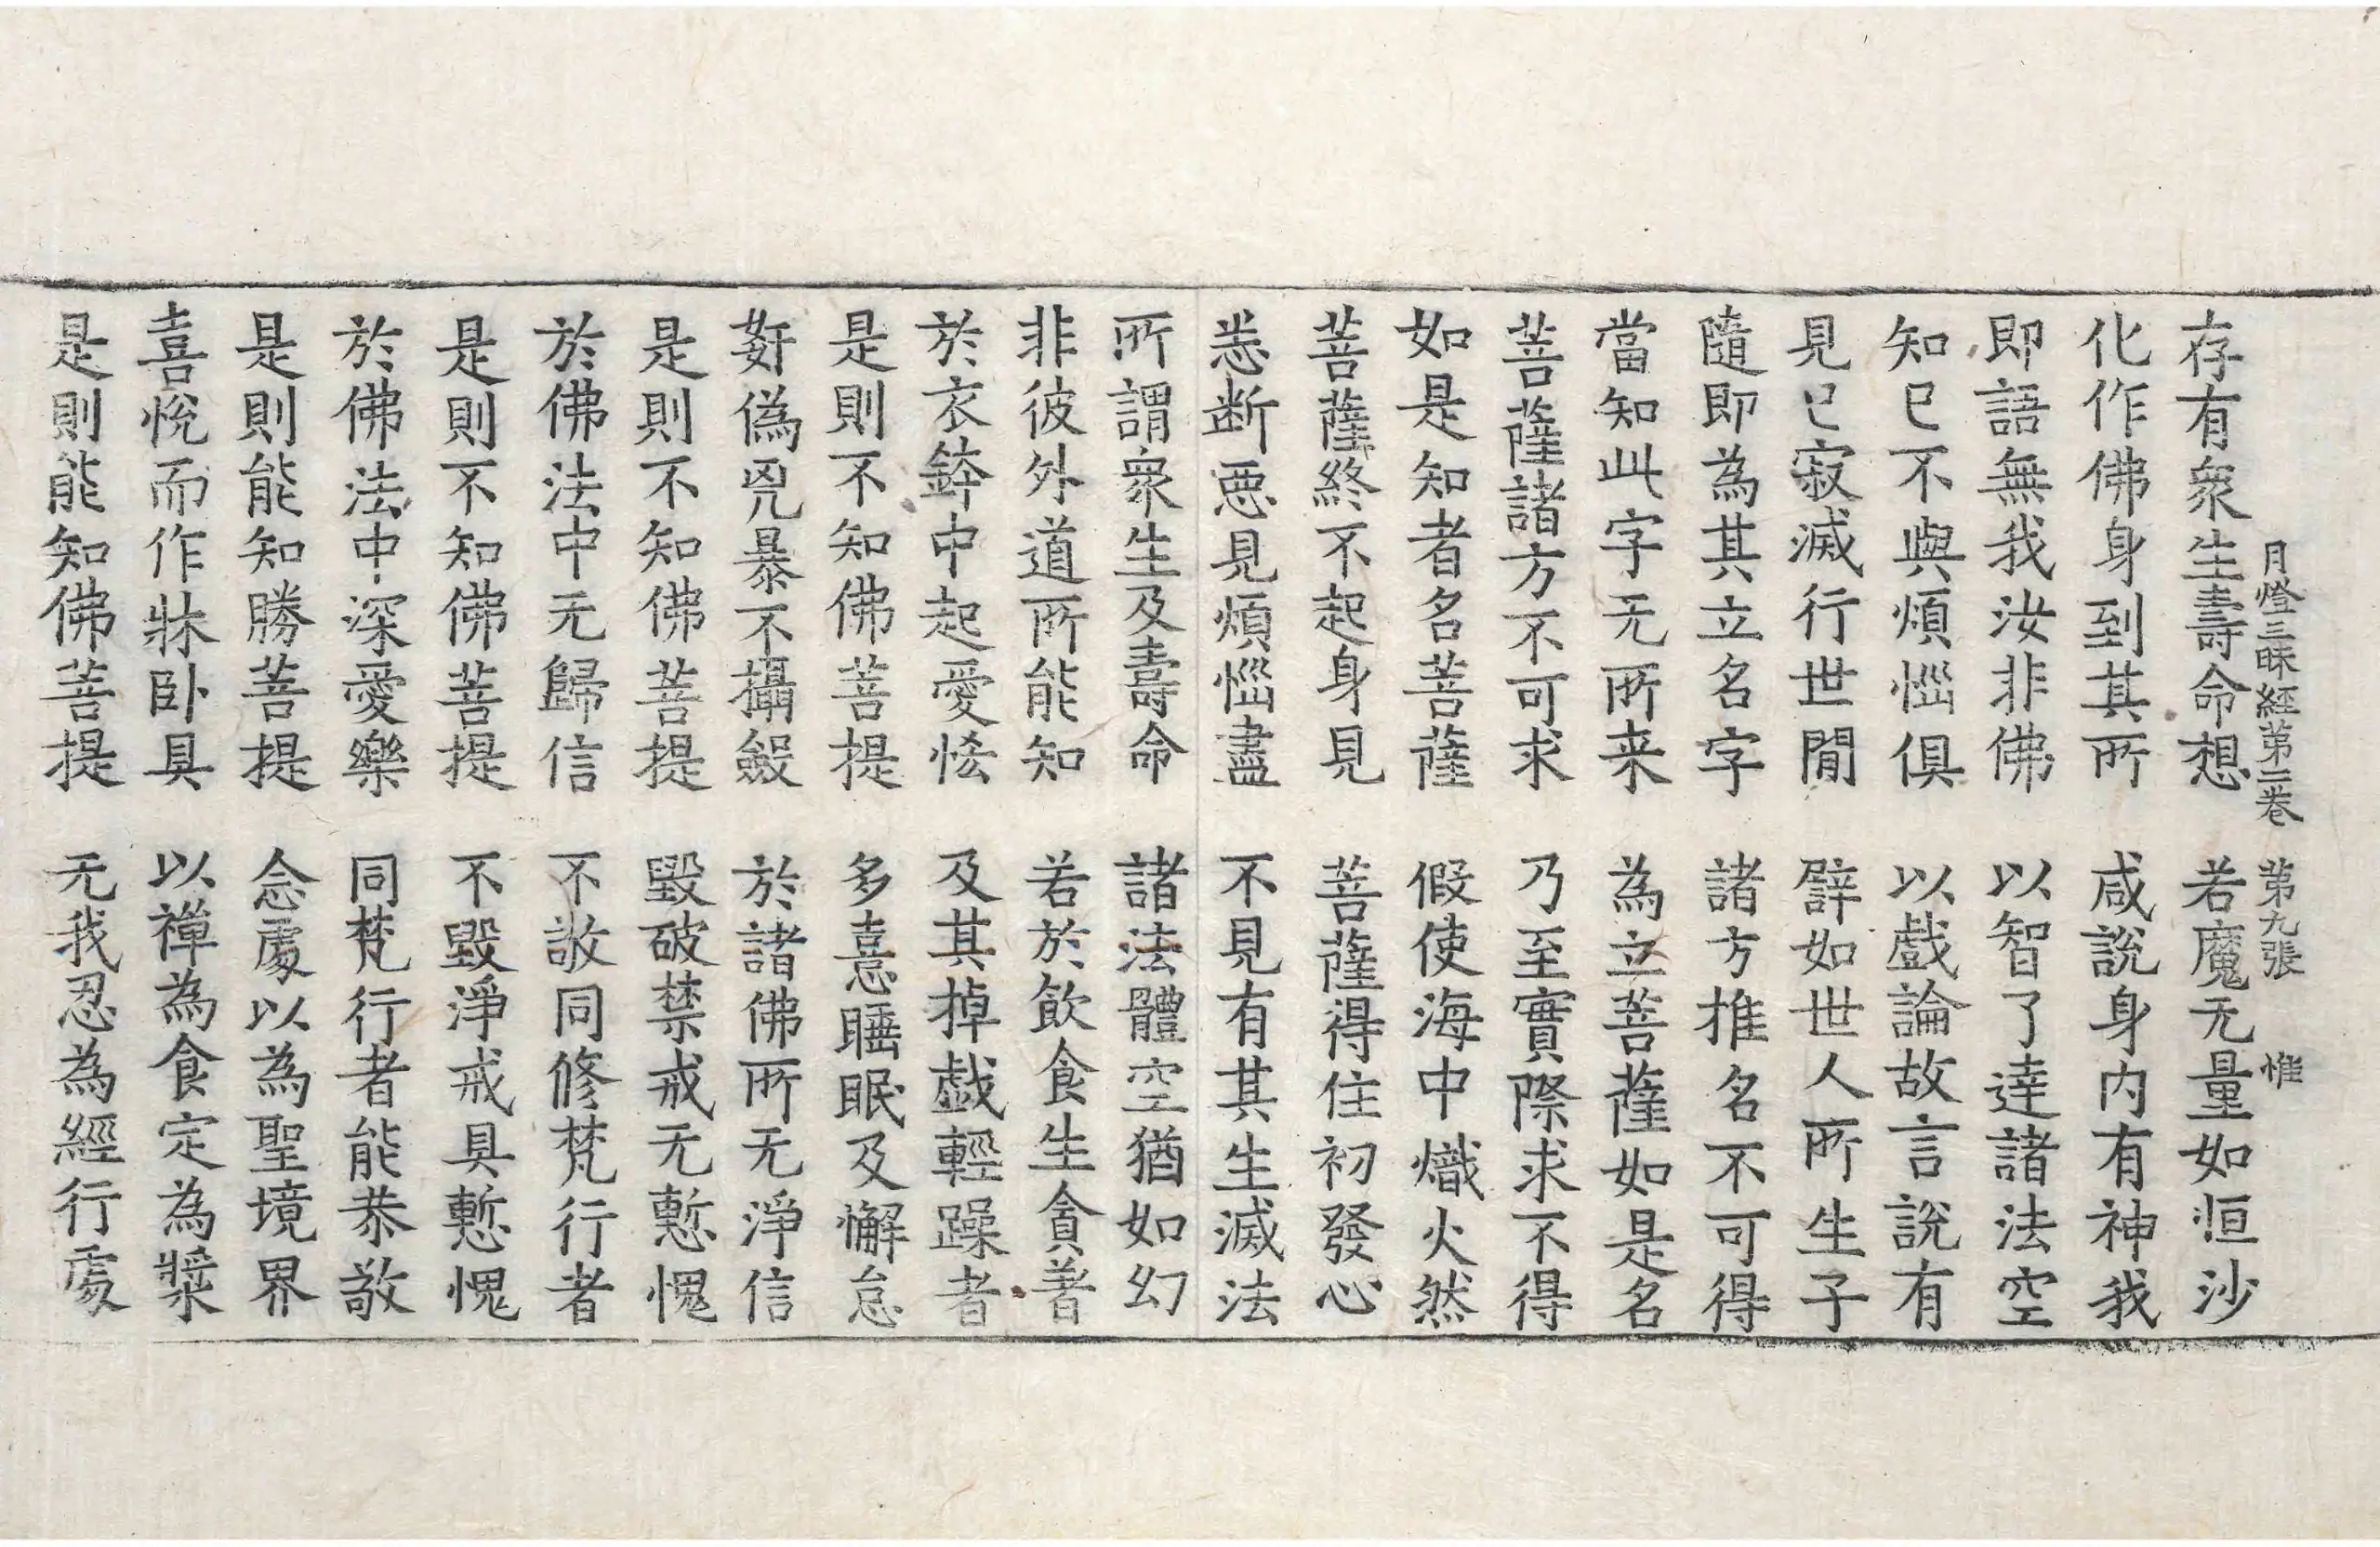 月燈三昧經第二卷　第九張　惟
存有衆生壽命想　若魔无量如恒沙
化作佛身到其所　咸說身内有神我
即語無我汝非佛　以智了達諸法空
知已不與煩惱俱　以戲論故言說有
見已寂滅行世閒　譬如世人所生子
隨即為其立名字　諸方推名不可得
當知此字无所来　為立菩薩如是名
菩薩諸方不可求　乃至實際求不得
如是知者名菩薩　假使海中熾火然
菩薩終不起身見　菩薩得住初發心
悉断惡見煩惱盡　不見有其生滅法
所謂衆生及壽命　諸法體空猶如幻
非彼外道所能知　若於飲食生貪著
於衣鉢中起愛恡　及其掉戲輕躁者
是則不知佛菩提　多憙睡眠及懈怠
姧偽兇暴不攝斂　於諸佛所无淨信
是則不知佛菩提　毀破禁戒无慙愧
於佛法中无歸信　不敬同修梵行者
是則不知佛菩提　不毀淨戒具慙愧
於佛法中深愛樂　同梵行者能恭敬
是則能知勝菩提　念處以為聖境界
喜悅而作牀卧具　以禪為食定為漿
是則能知佛菩提　无我忍為經行處